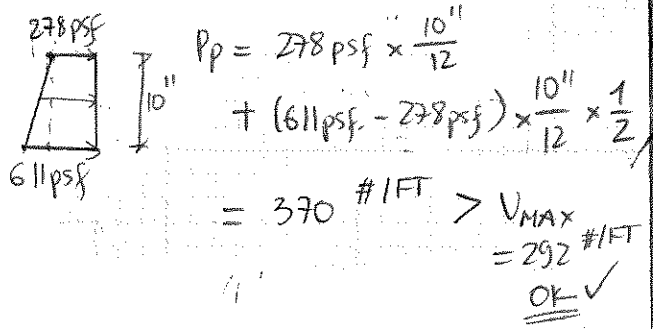 278psf
10"
611psf
Pp = 278 psf × 10"/12
+ (611psf. - 278psf) × 10"/12 × 1/2
= 370 #/FT > VMAX
= 292 #/FT
OK ✓